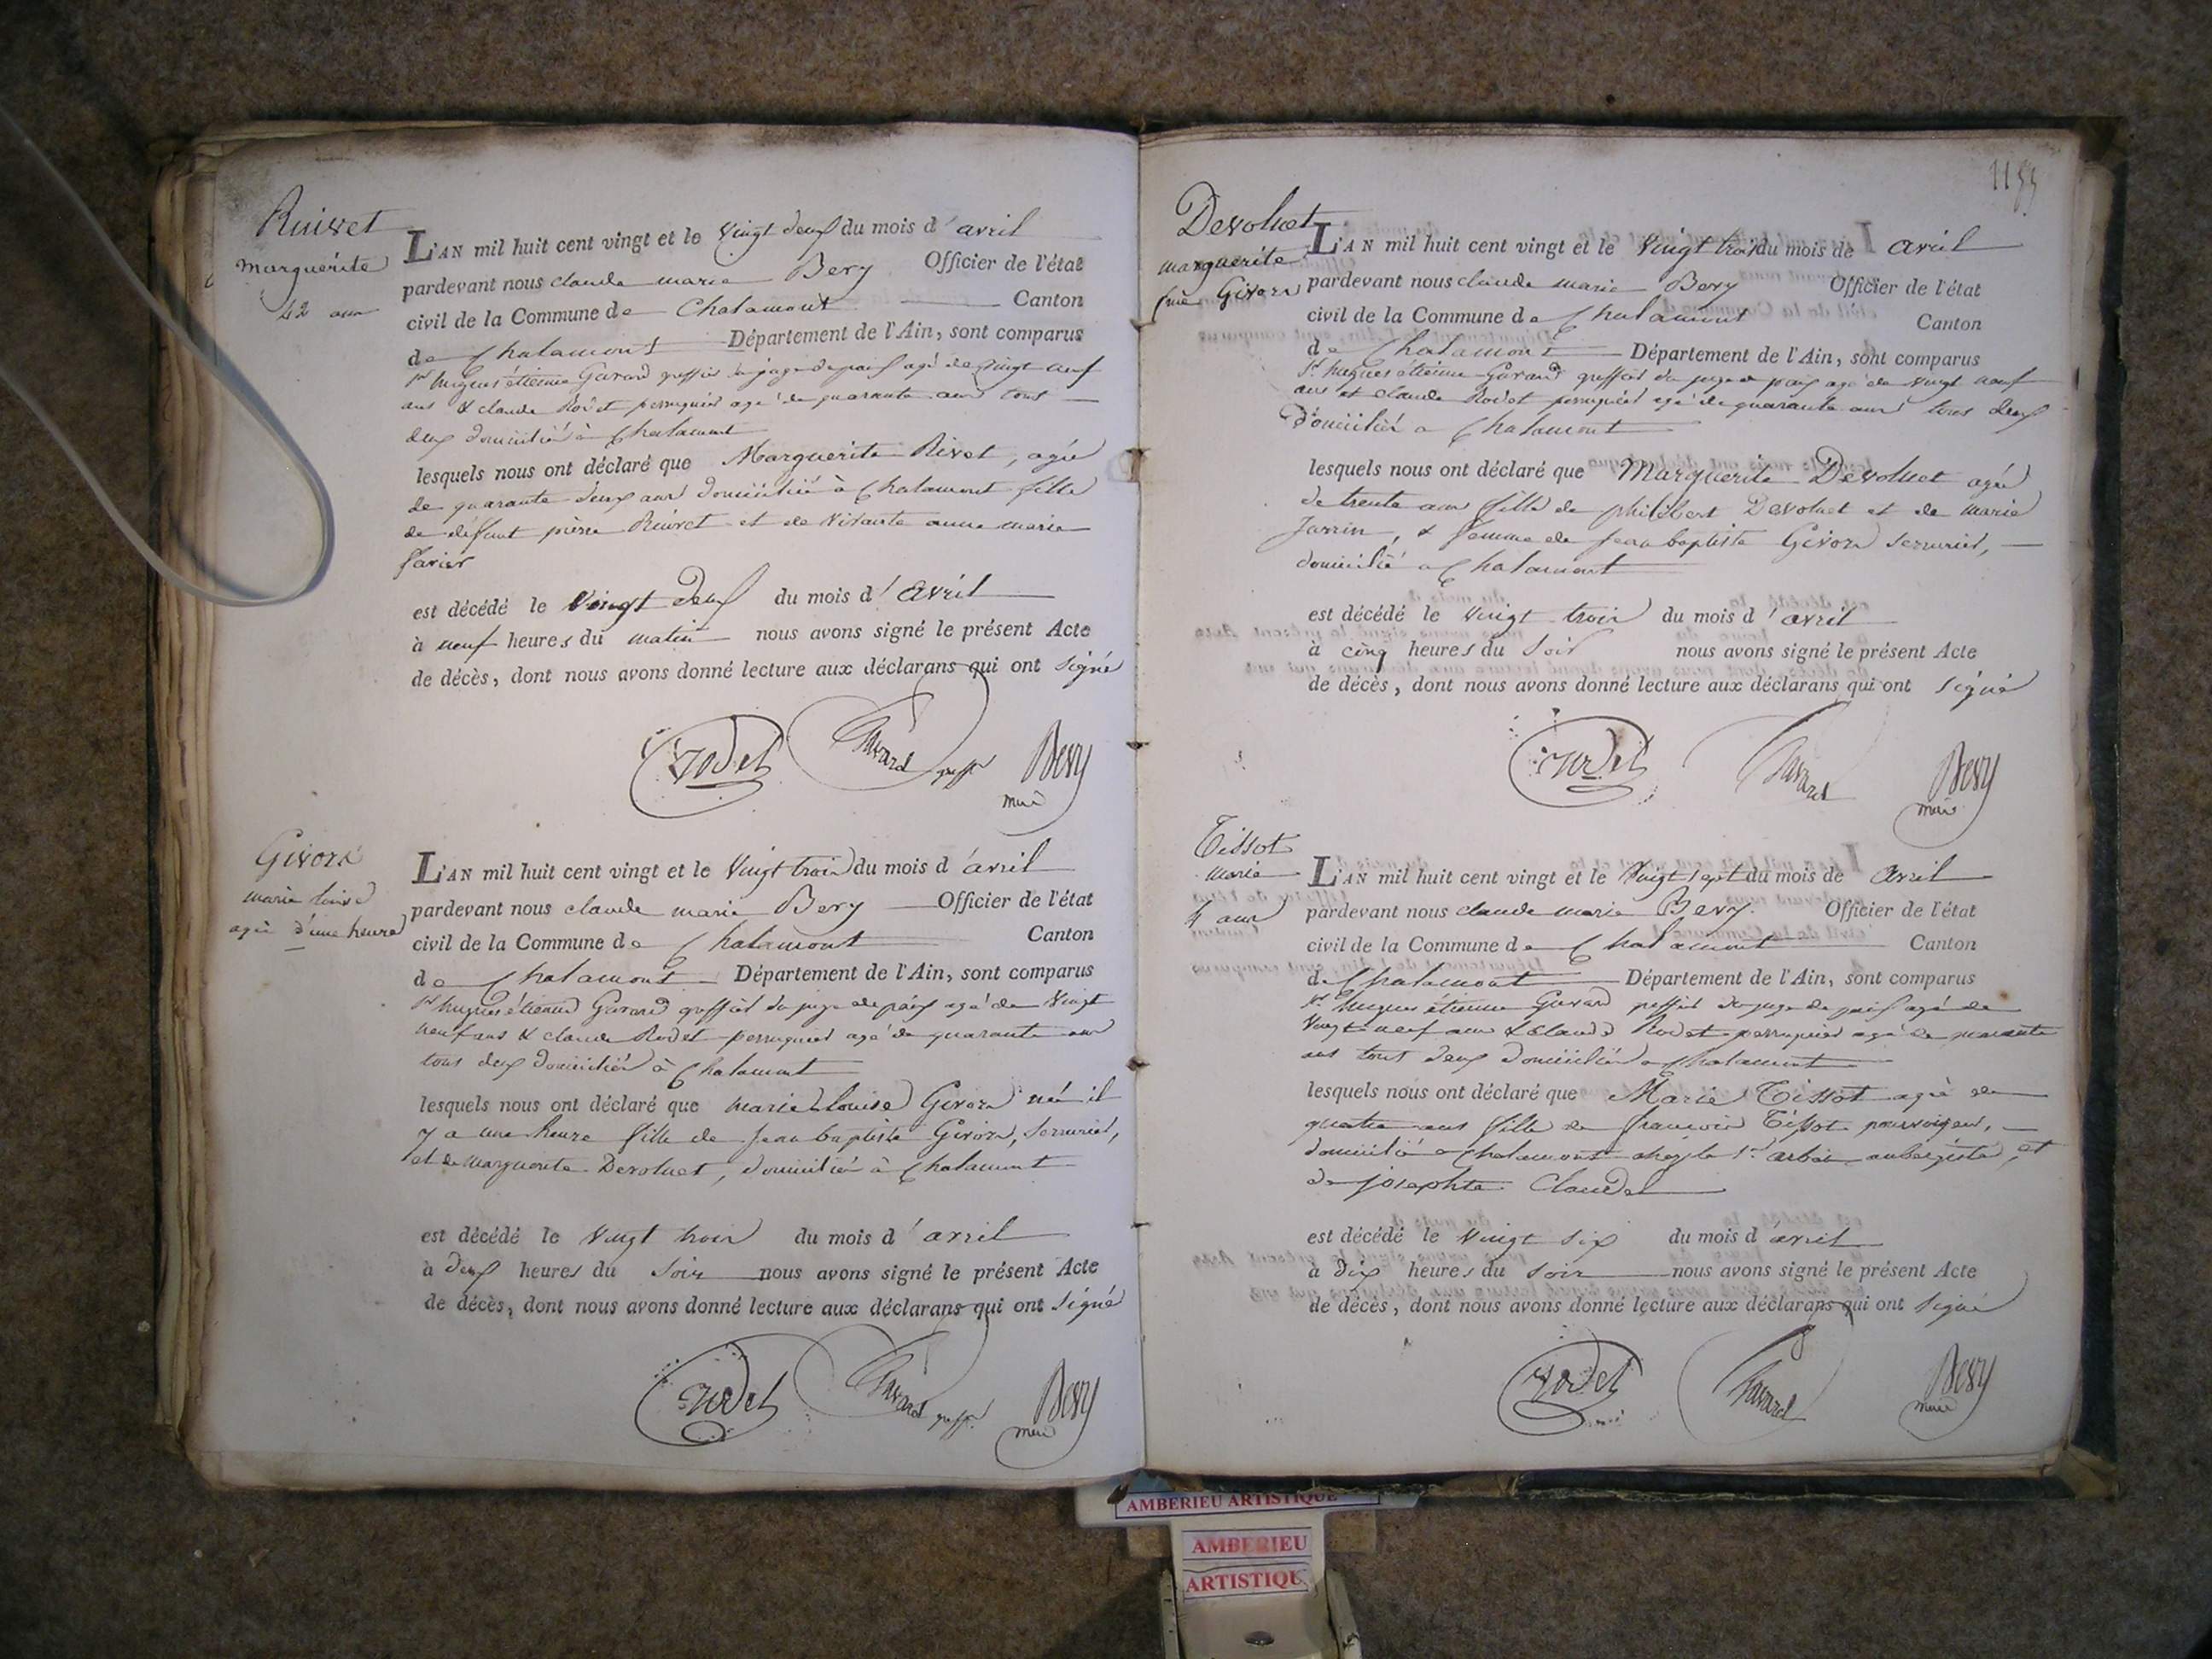 Ruivet
marguerite
42 ans
L'AN mil huit cent vingt et le Vingt deux du mois d'avril
pardevant nous claude marie Bevy Officier de l'état
civil de la Commune de Chalamont Canton
de Chalamont Département de l'Ain, sont comparus
Sr hugues étienne Gavard greffier du juge de paix agé de vingt neuf
ans & claude Rodet perruquier agé de quarante ans tous
deux domicilié à Chalamont
lesquels nous ont déclaré que Marguerite Rivet, agée
de quarante deux ans domiciliée à Chalamont fille
de défunt pierre Ruivet et de vivante anne marie
favier
est décédé le Vingt deux du mois d'avril
à neuf heures du matin nous avons signé le présent Acte
de décès, dont nous avons donné lecture aux déclarans qui ont signé
Rodet Gavard greff. Bevy
maire
Givord
marie louise
agée d'une heure
L'AN mil huit cent vingt et le Vingt trois du mois d'avril
pardevant nous claude marie Bevy Officier de l'état
civil de la Commune de Chalamont Canton
de Chalamont Département de l'Ain, sont comparus
Sr hugues étienne Gavard greffier du juge de paix agé de Vingt
neuf ans & claude Rodet perruquier agé de quarante ans
tous deux domiciliés à Chalamont
lesquels nous ont déclaré que marie Louise Givord née il
y a une heure fille de Jean baptiste Givord, serrurier,
et de Marguerite Devoluet, domiciliés à Chalamont
est décédé le vingt trois du mois d'avril
à deux heures du soir nous avons signé le présent Acte
de décès, dont nous avons donné lecture aux déclarans qui ont signé
Rodet Gavard greff. Bevy
maire
1155
Devoluet
marguerite
fme Givord
L'AN mil huit cent vingt et le Vingt trois du mois de avril
pardevant nous claude marie Bevy Officier de l'état
civil de la Commune de Chalamont Canton
de Chalamont Département de l'Ain, sont comparus
Sr hugues étienne Gavard greffier du juge de paix agé de vingt neuf
ans et claude Rodet perruquier agé de quarante ans tous deux
domiciliés a Chalamont
lesquels nous ont déclaré que Marguerite Devoluet agée
de trente ans fille de philibert Devoluet et de marie
Jarrin, & femme de Jean baptiste Givord serrurier,
domicilié a Chalamont
est décédé le vingt trois du mois d'avril
à cinq heures du Soir nous avons signé le présent Acte
de décès, dont nous avons donné lecture aux déclarans qui ont signé
Rodet Gavard Bevy
maire
Tissot
marie
4 ans
L'AN mil huit cent vingt et le Vingt sept du mois de avril
pardevant nous claude marie Bevy Officier de l'état
civil de la Commune de Chalamont Canton
de Chalamont Département de l'Ain, sont comparus
Sr hugues étienne Gavard greffier du juge de paix agé de
Vingt neuf ans & Claude Rodet perruquier agé de quarante
ans tous deux domiciliés a Chalamont
lesquels nous ont déclaré que Marie Tissot agée de
quatre ans fille de françois Tissot
domicilié a Chalamont chez le Sr aubergiste, et
de josephte Claudet
est décédé le vingt six du mois d'avril
à dix heures du soir nous avons signé le présent Acte
de décès, dont nous avons donné lecture aux déclarans qui ont signé
Rodet Gavard Bevy
maire
AMBERIEU ARTISTIQUE
AMBERIEU
ARTISTIQU